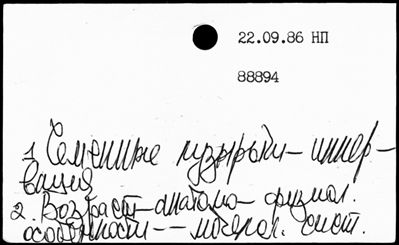 22.09.86 НП
88894
1. Семенные пузырьки – иннер-
вация
2. Возраст – анатомо – физиол.
особенности – – мочепол. сист.